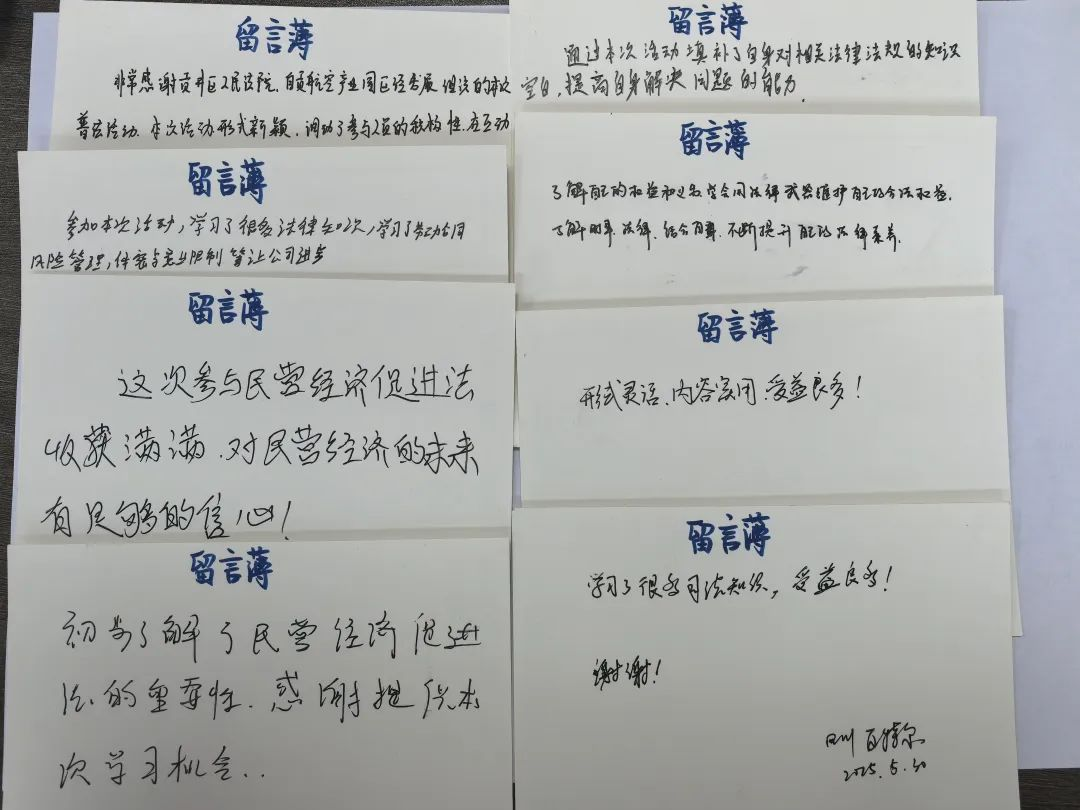 留言薄
非常感谢贡井区人民法院、自贡航空产业园区经发展 组织的本次
普法活动。本次活动形式新颖,调动了参与人员的积极性,在互动
留言薄
参加本次活动,学习了很多法律知识,学习了劳动合同
风险管理,伤害与竞业限制等让公司进步
留言薄
这次参与民营经济促进法
收获满满.对民营经济的未来
有足够的信心!
留言薄
初步了解了民营经济促进
法的重要性.感谢提供本
次学习机会..
留言薄
通过本次活动填补了自身对相关法律法规的知识
空白,提高自身解决问题的能力.
留言薄
了解自己的权益和义务,学会用法律武器维护自己的合法权益.
了解时事、法律,结合自事,不断提升自己的法律素养.
留言薄
形式灵活、内容实用.受益良多!
留言薄
学习了很多司法知识,受益良多!
谢谢!
四川百特尔
2025.5.30